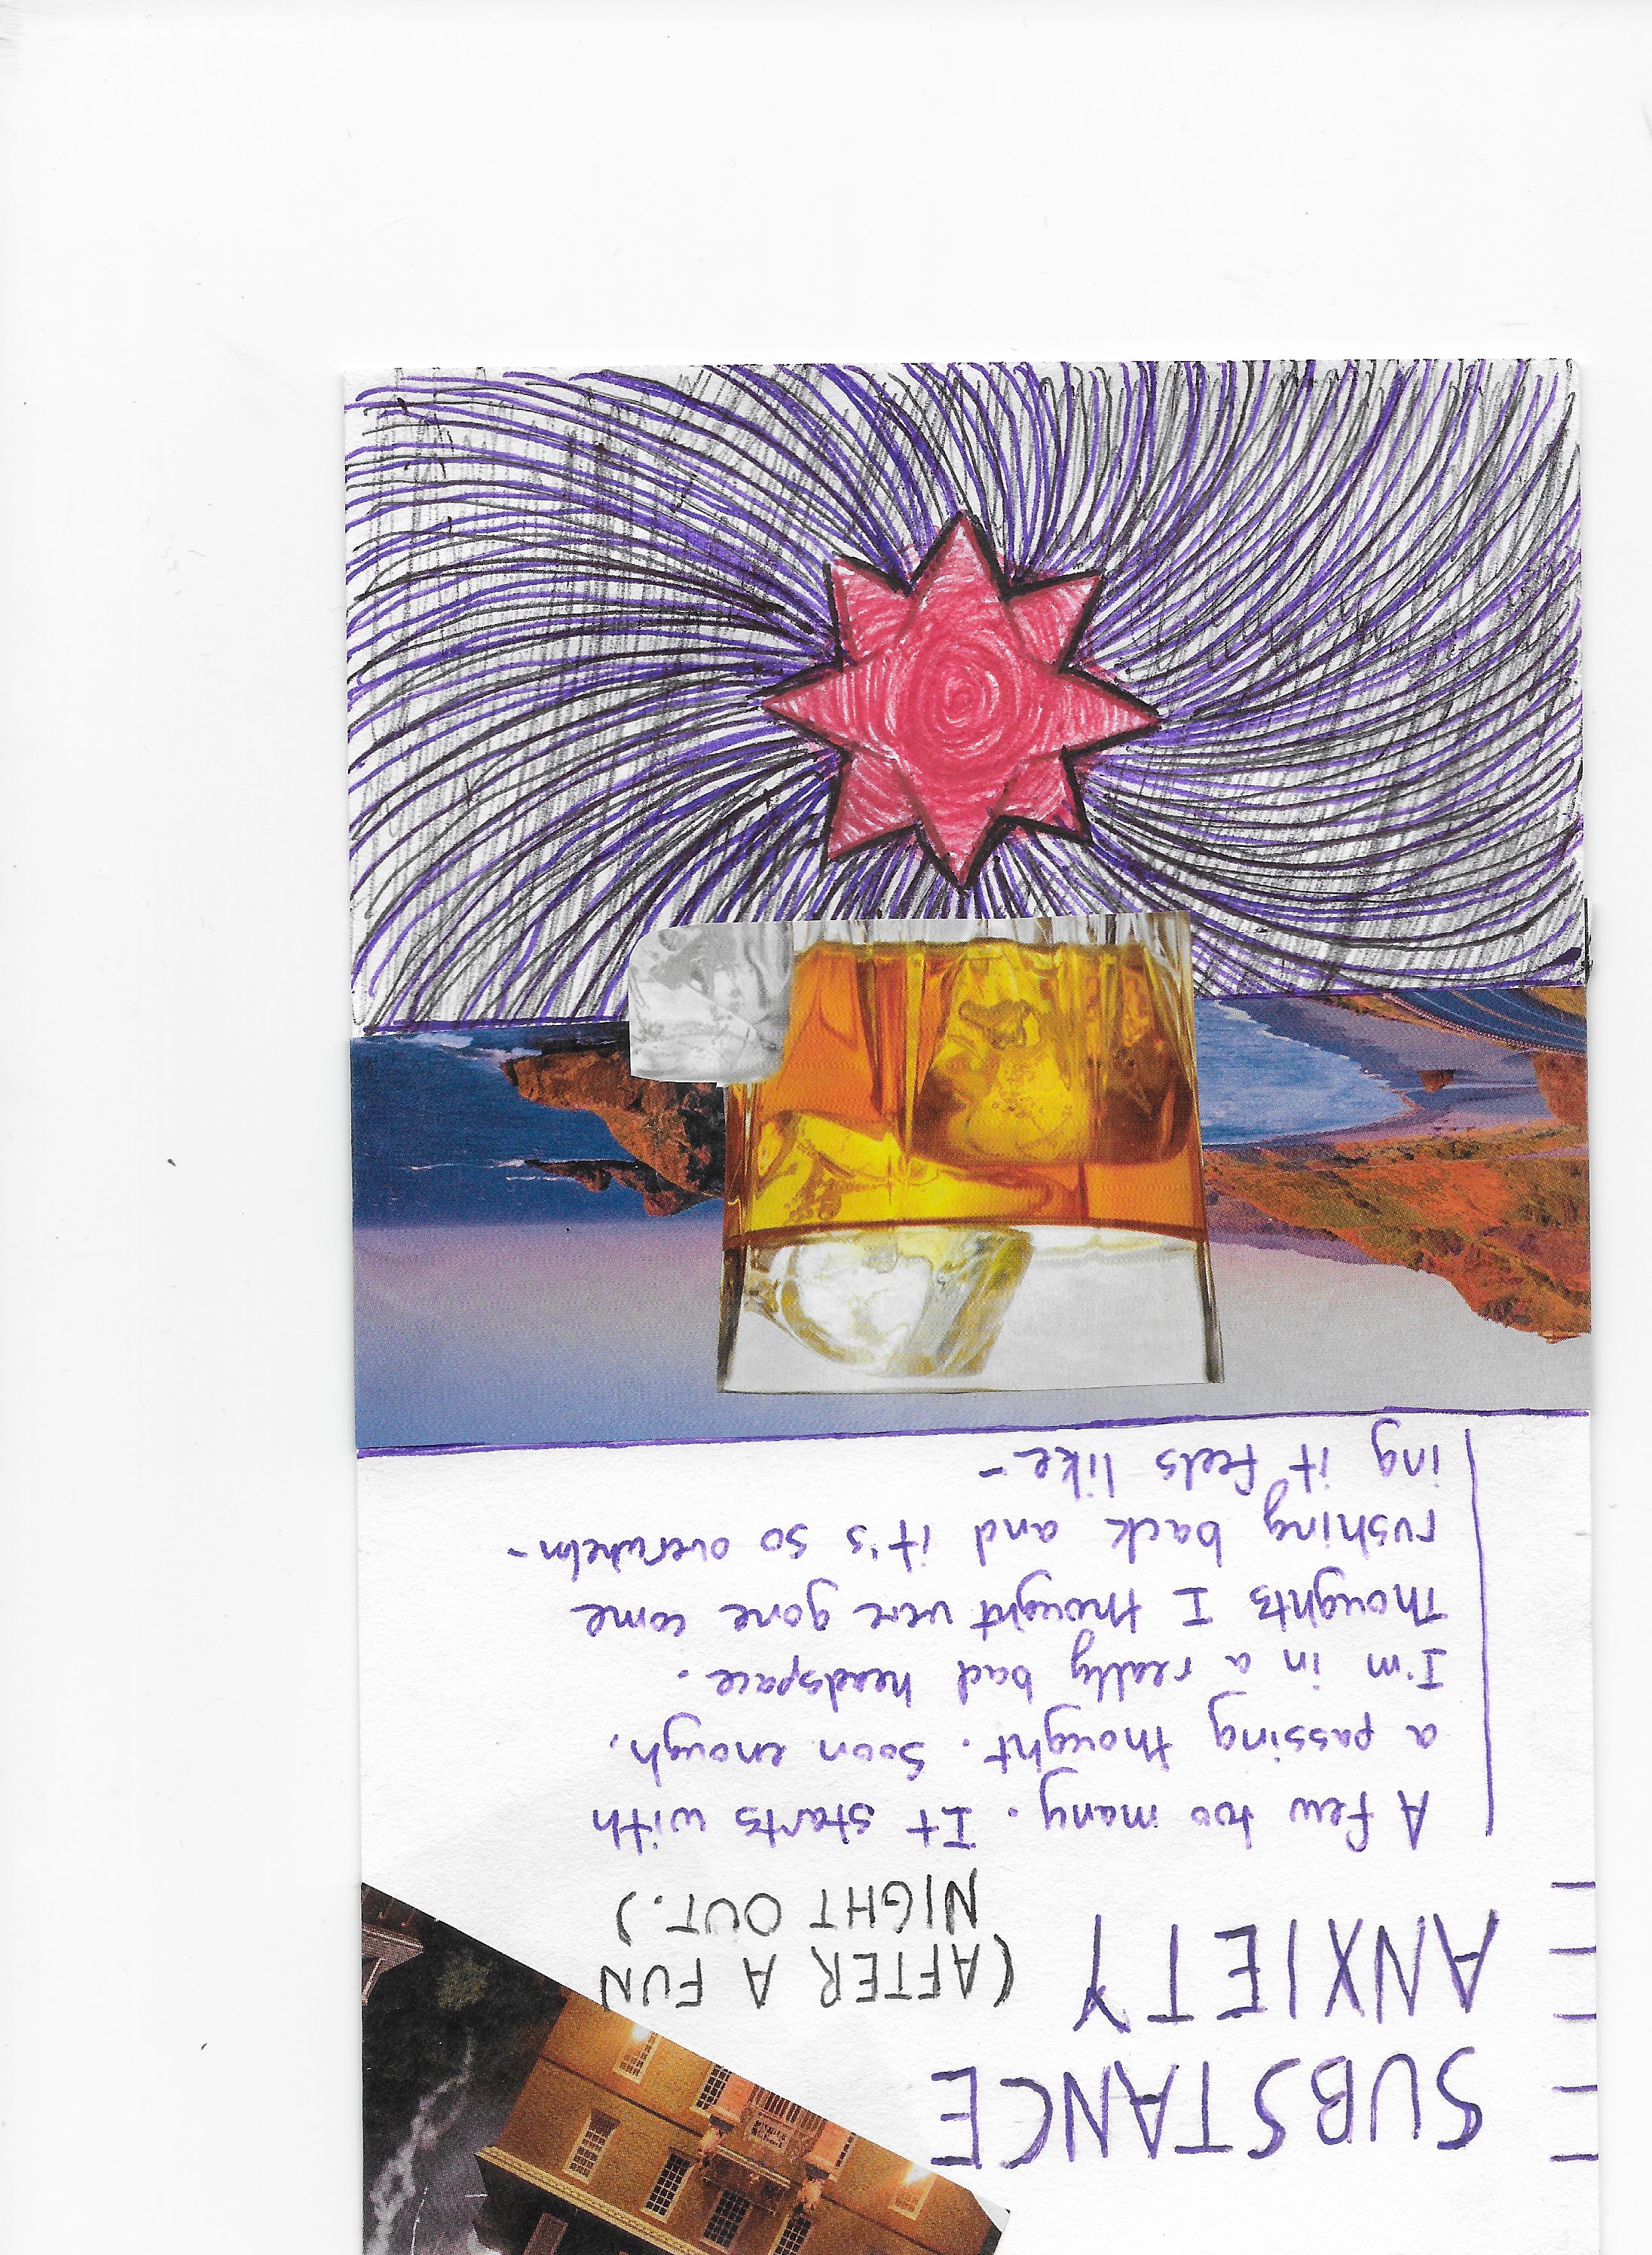 SUBSTANCE
ANXIETY (AFTER A FUN
NIGHT OUT.)
A few too many. It starts with
a passing thought. Soon enough,
I'm in a really bad headspace.
Thoughts I thought were gone come
rushing back and it's so overwhelm-
ing it feels like-